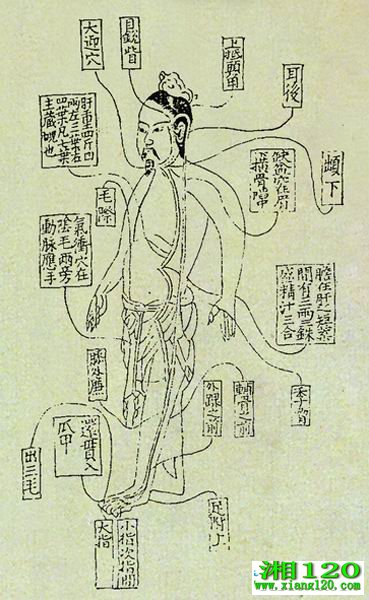 大迎穴
目銳眥
上抵頭角
耳後
䪼下
肝重四斤四
兩左三葉右
四葉凡七葉
主藏魂也
缺盆穴在肩
下橫骨陷
毛際
氣衝穴在
陰毛兩旁
動脈應手
膽在肝之短葉
間有三兩三銖
盛精汁三合
季脅
膝外廉
外踝之前
輔骨之前
還貫入
爪甲
出三毛
大指
小指次指間
足跗上
湘120
www.xiang120.com